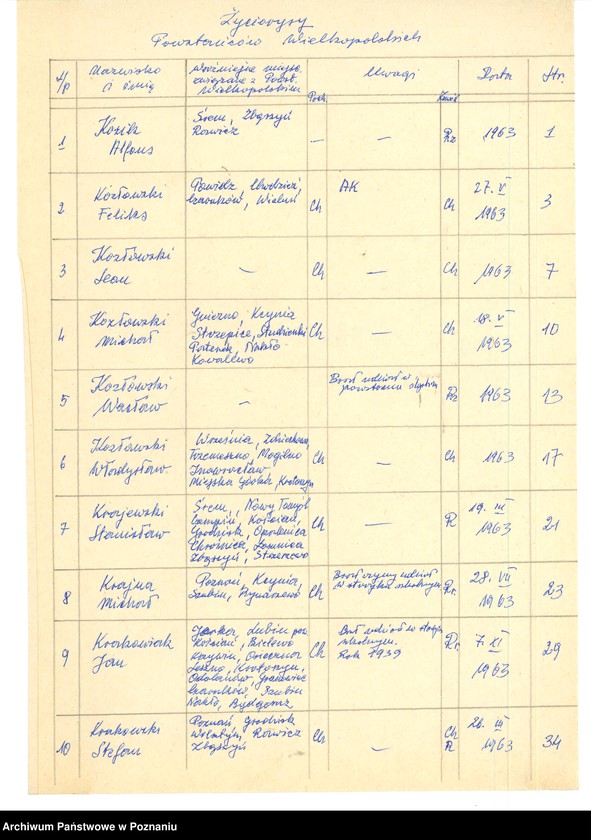 Życiorysy
Powstańców Wielkopolskich
L/p Nazwisko i imię Ważniejsze miejsc. związane z Powst. Wielkopolskim Poch. Uwagi Data Str.
1 Kozik Alfons Śrem, Zbąszyń Rawicz — — Rz 1963 1
2 Kozłowski Feliks Powidz, Chodzież, Czarnków, Wieluń Ch AK Ch 27. V 1963 3
3 Kozłowski Jean — Ch — Ch 1963 7
4 Kozłowski Michał Gniezno, Kcynia Ch — Ch 18. V 1963 10
5 Kozłowski Wacław — Brał udział w powstaniu śląskim Rz 1963 13
6 Kozłowski Władysław Września, Trzemeszno, Mogilno Inowrocław Miejska Górka, Krotoszyn Ch — Ch 1963 17
7 Krajewski Stanisław Śrem, Nowy Tomyśl Kościan, Grodzisk, Opalenica Chrośnica, Łomnica Zbąszyń Ch — R 19. III 1963 21
8 Krajna Michał Poznań, Kcynia, Szubin, Rynarzewo Ch Brał czynny udział w strajku szkolnym Pr. 28. VII 1963 23
9 Krakowiak Jan Jarka, Lubin pow. Kościan, Leszno, Krotoszyn, Odolanów, Czarnków, Szubin Nakło, Bydgoszcz Ch Brał udział w strajku szkolnym. Rok 1939 Pr. 7. XI 1963 29
10 Krakowski Stefan Poznań, Grodzisk Wolsztyn, Rawicz Zbąszyń Ch — Ch R 26. III 1963 34
Archiwum Państwowe w Poznaniu